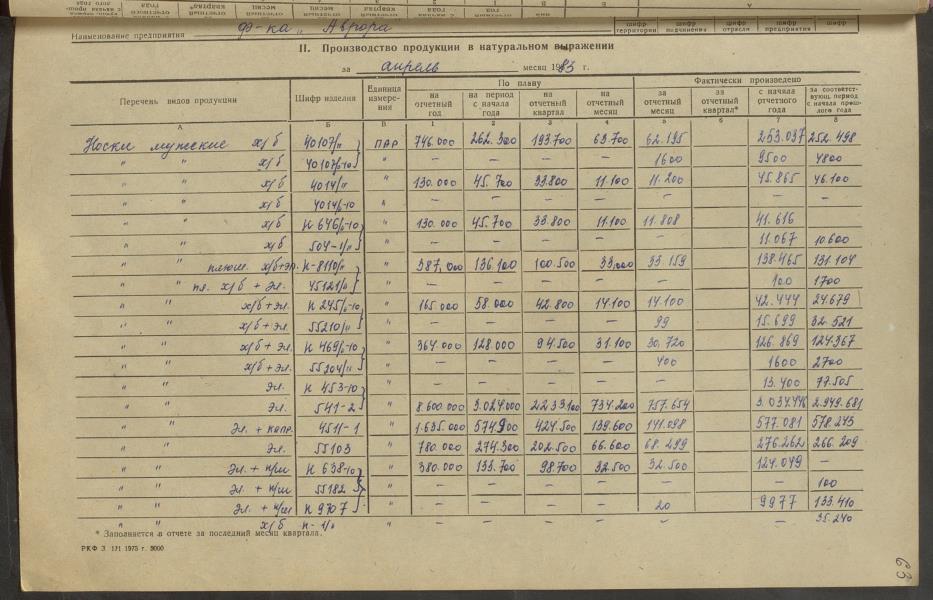 Наименование предприятия ф-ка „Аврора
шифр территории шифр подчинения шифр отрасли шифр предприятия шифр
II. Производство продукции в натуральном выражении
за апрель месяц 1985 г.
Перечень видов продукции Шифр изделия Единица измерения По плану Фактически произведено
на отчетный год на период с начала года на отчетный квартал на отчетный месяц за отчетный месяц за отчетный квартал* с начала отчетного года за соответствующ. период с начала прошлого года
А Б В 1 2 3 4 5 6 7 8
Носки мужские х/б 40107/11 ПАР 746.000 262.300 193.700 63.700 62.195 253.037 252.498
" " х/б 40107/-10 " – – – – 1600 9500 4800
" " х/б 4014/11 " 130.000 45.700 33.800 11.100 11.200 45.865 46.100
" " х/б 4014/-10 " – – – – – – –
" " х/б К 646/-10 " 130.000 45.700 33.800 11.100 11.808 41.616
" " х/б 504-1/11 " – – – – – 11.067 10.600
" " плюш. х/б+эл. К-8110/11 " 387.000 136.100 100.500 33.000 33.159 138.465 131.104
" " пл. х/б + эл. 45121/11 " – – – – – 100 1700
" " х/б+эл. К 245/-10 " 165.000 58.000 42.800 14.100 14.100 42.444 24.679
" " х/б + эл. 55210/11 " – – – – 99 15.699 32.521
" " х/б + эл. К 469/-10 " 364.000 128.000 94.500 31.100 30.720 126.869 124.367
" " х/б+эл. 55204/11 " – – – – 400 1600 2700
" " эл. К 453-10 " – – – – – 13.400 77.505
" " эл. 541-2 " 8.600.000 3.024.000 2.233.100 734.200 757.654 3.034.446 2.949.681
" " эл. + капр. 4511-1 " 1.635.000 574.900 424.500 139.600 141.098 577.081 578.245
" " эл. 55103 " 780.000 274.300 202.500 66.600 68.499 276.262 266.209
" " эл. + п/ш К 638-10 " 380.000 133.700 98.700 32.500 32.500 124.049 –
" " эл. + п/ш 55182 " – – – – – – 100
" " эл. + п/ш К 9707 " – – – – 20 9977 133.410
" " х/б К-1/11 " – – – – – – 35.240
* Заполняется в отчете за последний месяц квартала.
РКФ З. 171 1975 г. 3000
63